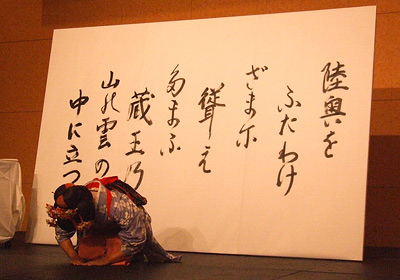 陸奥を
ふたわけ
ざま尓
聳え
多まふ
蔵王乃
山能雲の
中に立つ